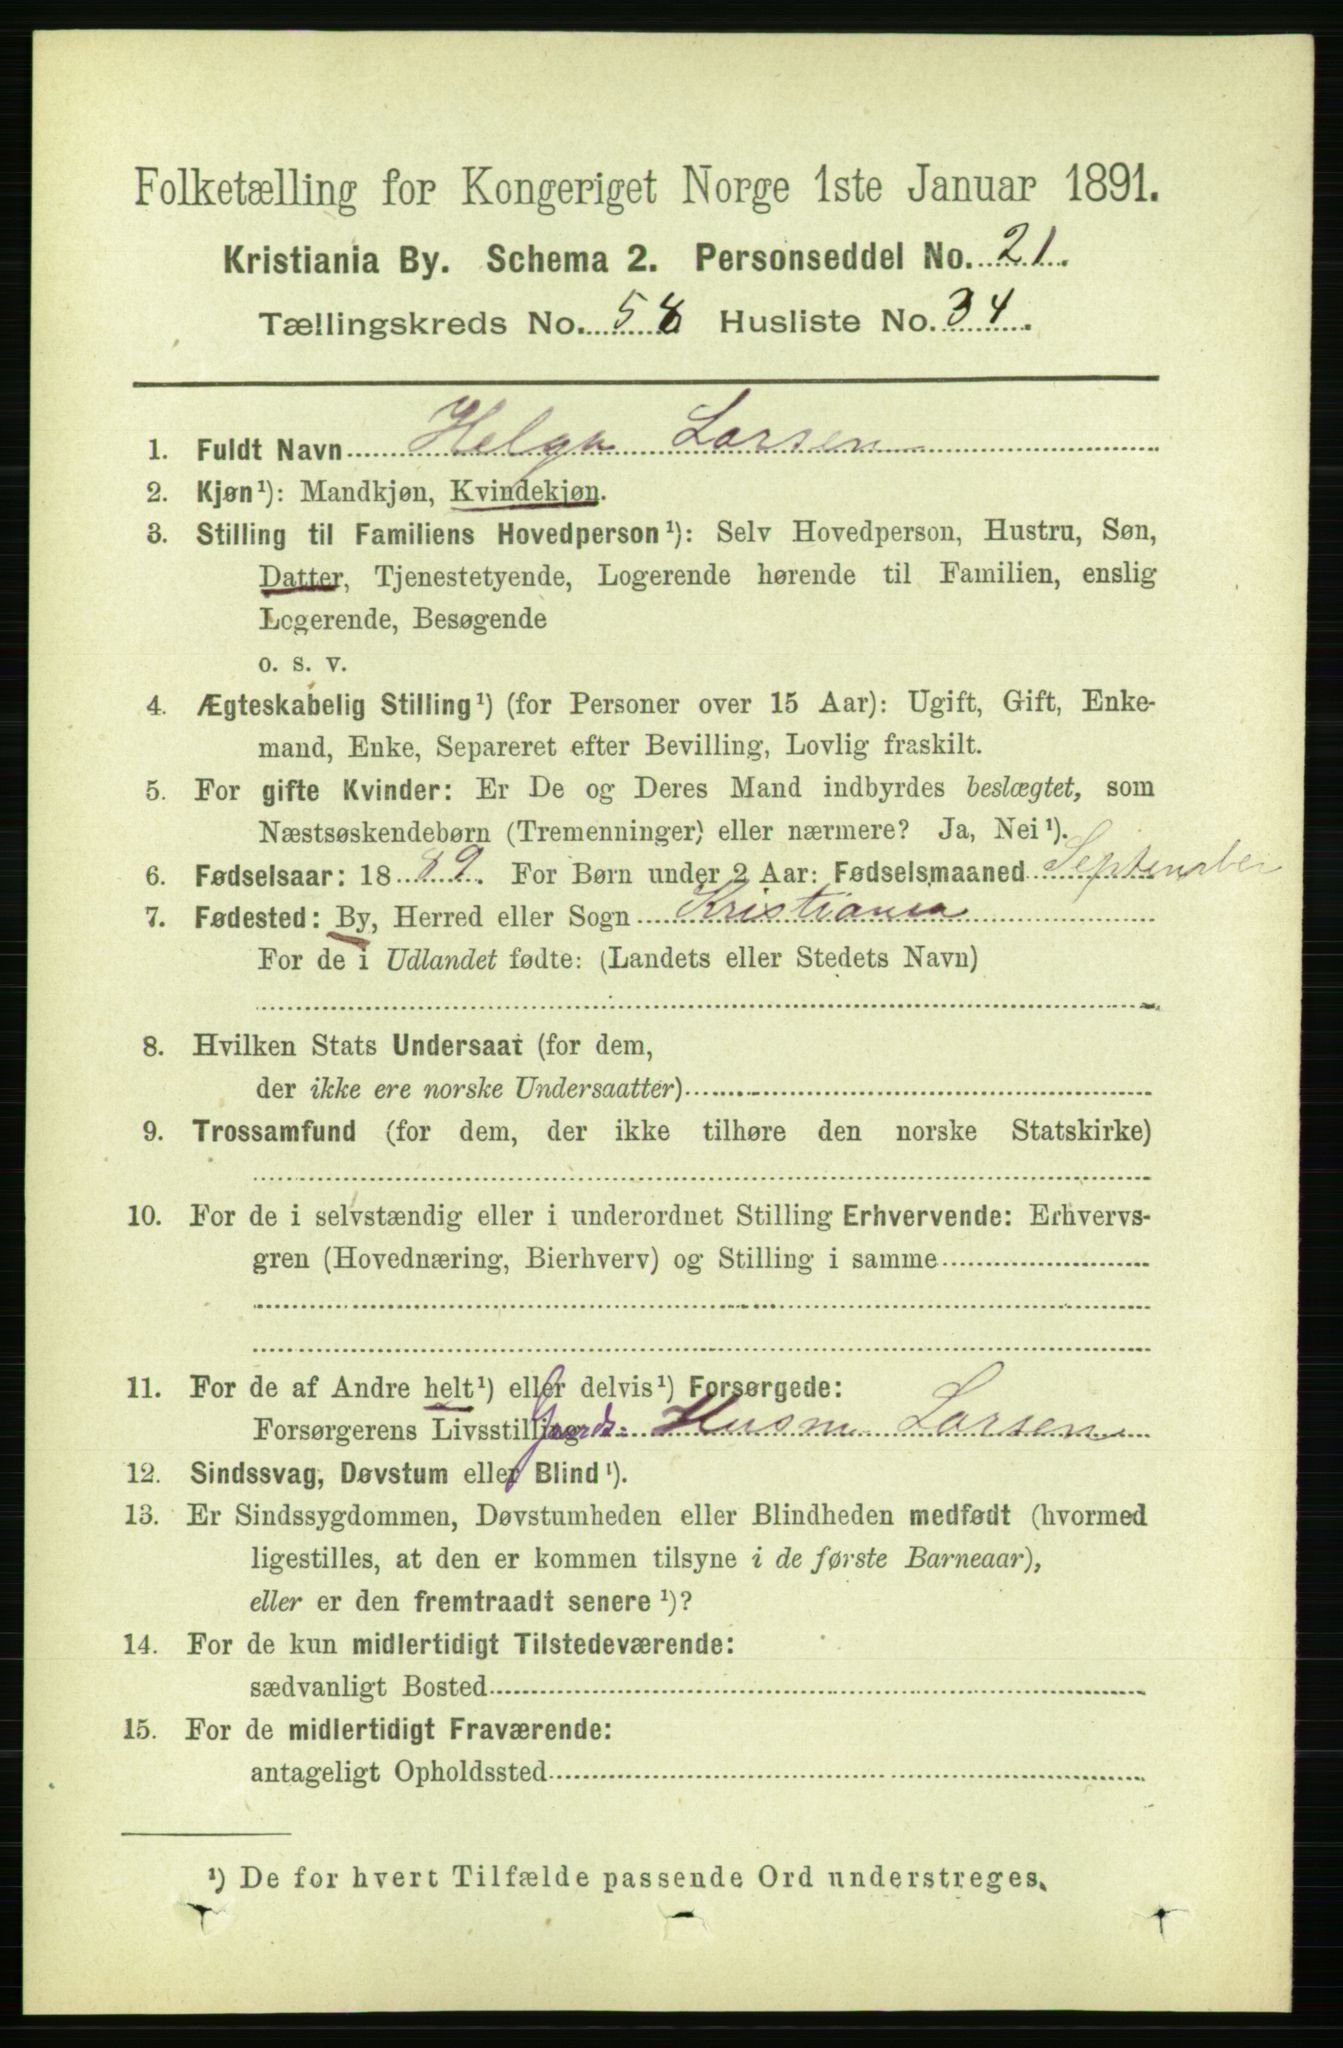 Folketælling for Kongeriget Norge 1ste Januar 1891.
Kristiania By. Schema 2. Personseddel No. 21.
Tællingskreds No. 58 Husliste No. 34.
1. Fuldt Navn Helga Larsen
2. Kjøn¹): Mandkjøn, Kvindekjøn.
3. Stilling til Familiens Hovedperson¹): Selv Hovedperson, Hustru, Søn,
Datter, Tjenestetyende, Logerende hørende til Familien, enslig
Logerende, Besøgende
o. s. v.
4. Ægteskabelig Stilling¹) (for Personer over 15 Aar): Ugift, Gift, Enke-
mand, Enke, Separeret efter Bevilling, Lovlig fraskilt.
5. For gifte Kvinder: Er De og Deres Mand indbyrdes beslægtet, som
Næstsøskendebørn (Tremenninger) eller nærmere? Ja, Nei¹).
6. Fødselsaar: 1889. For Børn under 2 Aar: Fødselsmaaned September
7. Fødested: By, Herred eller Sogn Kristiania
For de i Udlandet fødte: (Landets eller Stedets Navn)
8. Hvilken Stats Undersaat (for dem,
der ikke ere norske Undersaatter)
9. Trossamfund (for dem, der ikke tilhøre den norske Statskirke)
10. For de i selvstændig eller i underordnet Stilling Erhvervende: Erhvervs-
gren (Hovednæring, Bierhverv) og Stilling i samme
11. For de af Andre helt¹) eller delvis¹) Forsørgede:
Forsørgerens Livsstilling Larsen
12. Sindssvag, Døvstum eller Blind¹).
13. Er Sindssygdommen, Døvstumheden eller Blindheden medfødt (hvormed
ligestilles, at den er kommen tilsyne i de første Barneaar),
eller er den fremtraadt senere¹)?
14. For de kun midlertidigt Tilstedeværende:
sædvanligt Bosted
15. For de midlertidigt Fraværende:
antageligt Opholdssted
¹) De for hvert Tilfælde passende Ord understreges.